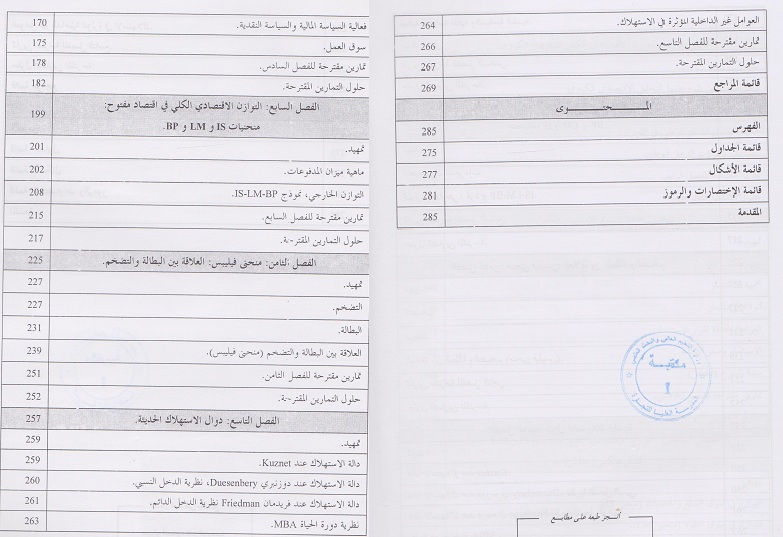 فعالية السياسة المالية والسياسة النقدية. 170
سوق العمل. 175
تمارين مقترحة للفصل السادس. 178
حلول التمارين المقترحة. 182
الفصل السابع: التوازن الاقتصادي الكلي في اقتصاد مفتوح:
منحنيات IS و LM و BP. 199
تمهيد. 201
ماهية ميزان المدفوعات. 202
التوازن الخارجي، نموذج IS-LM-BP. 208
تمارين مقترحة للفصل السابع. 215
حلول التمارين المقترحة. 217
الفصل الثامن: منحنى فيليبس: العلاقة بين البطالة والتضخم. 225
تمهيد. 227
التضخم. 227
البطالة. 231
العلاقة بين البطالة والتضخم (منحنى فيليبس). 239
تمارين مقترحة للفصل الثامن. 251
حلول التمارين المقترحة. 252
الفصل التاسع: دوال الاستهلاك الحديثة. 257
تمهيد. 259
دالة الاستهلاك عند Kuznet. 259
دالة الاستهلاك عند دوزنبري Duesenbery، نظرية الدخل النسبي. 260
دالة الاستهلاك عند فريدمان Friedman نظرية الدخل الدائم. 261
نظرية دورة الحياة MBA. 263
العوامل غير الداخلية المؤثرة في الاستهلاك. 264
تمارين مقترحة للفصل التاسع. 266
حلول التمارين المقترحة. 267
قائمة المراجع 269
المـــحتـــوى
الفهرس 285
قائمة الجداول 275
قائمة الأشكال 277
قائمة الإختصارات والرموز 281
المقدمة 285
وزارة التعليم العالي والبحث العلمي
مكتبة
المدرسة العليا للتجارة
أنجز طبعه على مطابع